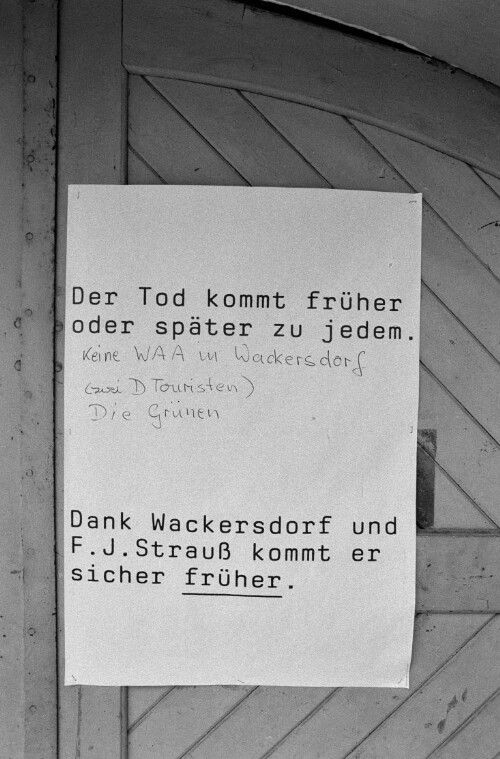 Der Tod kommt früher
oder später zu jedem.
Keine WAA in Wackersdorf
(zwei D Touristen)
Die Grünen
Dank Wackersdorf und
F.J.Strauß kommt er
sicher früher.